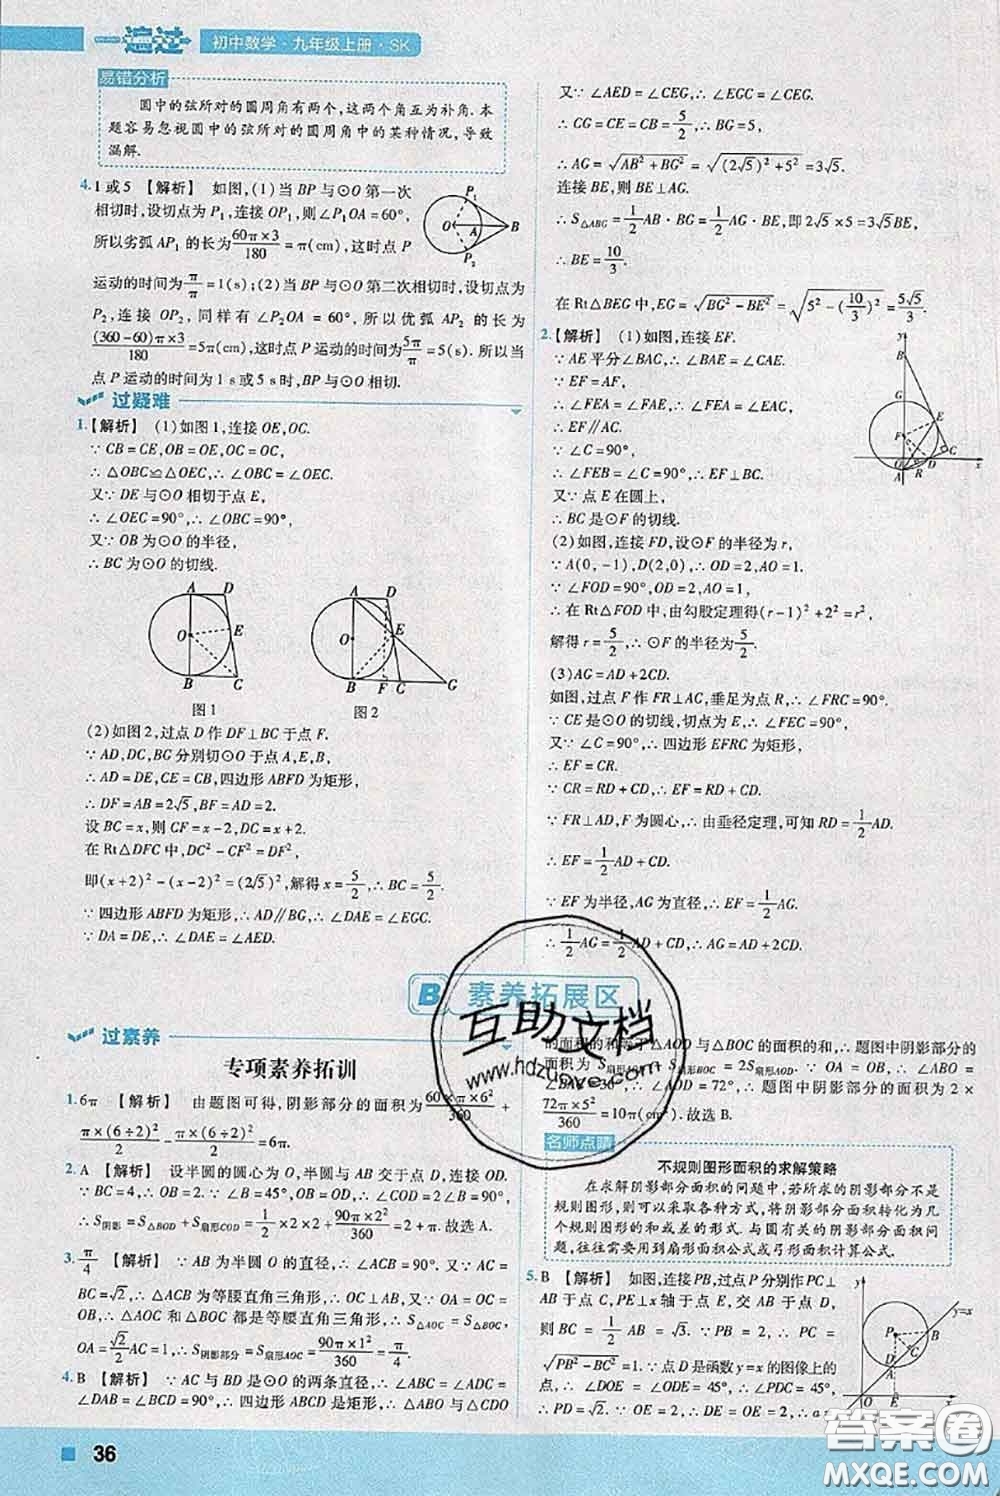 一遍过 初中数学·九年级上册·SK
易错分析
圆中的弦所对的圆周角有两个,这两个角互为补角.本
题容易忽视圆中的弦所对的圆周角中的某种情况,导致
漏解.
4.1或5 【解析】 如图,(1)当BP与⊙O第一次
相切时,设切点为P₁,连接OP₁,则∠P₁OA=60°,
所以劣弧AP₁的长为60π×3/180=π(cm),这时点P
运动的时间为π/π=1(s);(2)当BP与⊙O第二次相切时,设切点为
P₂,连接OP₂,同样有∠P₂OA=60°,所以优弧AP₂的长为
(360-60)π×3/180=5π(cm),这时点P运动的时间为5π/π=5(s).所以当
点P运动的时间为1 s或5 s时,BP与⊙O相切.
P₁
O A B
P₂
过疑难
1.【解析】 (1)如图1,连接OE,OC.
∵CB=CE,OB=OE,OC=OC,
∴△OBC≌△OEC,∴∠OBC=∠OEC.
又∵DE与⊙O相切于点E,
∴∠OEC=90°,∴∠OBC=90°,
又∵OB为⊙O的半径,
∴BC为⊙O的切线.
A D O E B C
图1
A D O E B F C G
图2
(2)如图2,过点D作DF⊥BC于点F.
∵AD,DC,BG分别切⊙O于点A,E,B,
∴AD=DE,CE=CB,四边形ABFD为矩形,
∴DF=AB=2√5,BF=AD=2.
设BC=x,则CF=x-2,DC=x+2.
在Rt△DFC中,DC²-CF²=DF²,
即(x+2)²-(x-2)²=(2√5)²,解得x=5/2,∴BC=5/2.
∵四边形ABFD为矩形,∴AD∥BG,∴∠DAE=∠EGC.
∵DA=DE,∴∠DAE=∠AED.
又∵∠AED=∠CEG,∴∠EGC=∠CEG.
∴CG=CE=CB=5/2,∴BG=5,
∴AG=√(AB²+BG²)=√((2√5)²+5²)=3√5.
连接BE,则BE⊥AG.
∴S△ABG=1/2AB·BG=1/2AG·BE,即2√5×5=3√5BE,
∴BE=10/3.
在Rt△BEG中,EG=√(BG²-BE²)=√(5²-(10/3)²)=5√5/3.
2.【解析】 (1)如图,连接EF.
∵AE平分∠BAC,∴∠BAE=∠CAE.
∵EF=AF,
∴∠FEA=∠FAE,∴∠FEA=∠EAC,
∴EF∥AC.
∵∠C=90°,
∴∠FEB=∠C=90°,∴EF⊥BC.
又∵点E在圆上,
∴BC是⊙F的切线.
y B G E F C O A R D x
(2)如图,连接FD,设⊙F的半径为r,
∵A(0,-1),D(2,0),∴OD=2,AO=1.
∵∠FOD=90°,OF=AF-AO,
∴在Rt△FOD中,由勾股定理得(r-1)²+2²=r²,
解得r=5/2,∴⊙F的半径为5/2.
(3)AG=AD+2CD.
如图,过点F作FR⊥AC,垂足为点R,∴∠FRC=90°,
∵CE是⊙O的切线,切点为E,∴∠FEC=90°,
又∵∠C=90°,∴四边形EFRC为矩形,
∴EF=CR.
∵CR=RD+CD,∴EF=RD+CD.
∵FR⊥AD,F为圆心,∴由垂径定理,可知RD=1/2AD.
∴EF=1/2AD+CD.
∵EF为半径,AG为直径,∴EF=1/2AG,
∴1/2AG=1/2AD+CD,∴AG=AD+2CD.
B 素养拓展区
过素养
专项素养拓训
1.6π 【解析】 由题图可得,阴影部分的面积为60×π×6²/360+
π×(6÷2)²/2-π×(6÷2)²/2=6π.
2.A 【解析】 设半圆的圆心为O,半圆与AB交于点D,连接OD.
∵BC=4,∴OB=2.∵∠B=45°,OB=OD,∴∠COD=2∠B=90°,
∴S阴影=S△BOD+S扇形COD=1/2×2×2+90π×2²/360=2+π.故选A.
3.π/4 【解析】 ∵AB为半圆O的直径,∴∠ACB=90°.∵AC=
BC=√2,∴△ACB为等腰直角三角形,∴OC⊥AB,又∵OA=OB,
∴△AOC和△BOC都是等腰直角三角形,∴S△AOC=S△BOC,
OA=√2/2AC=1,∴S阴影部分=S扇形AOC=90π×1²/360=π/4.
4.B 【解析】 ∵AC与BD是⊙O的两条直径,∴∠ABC=∠ADC=
∠DAB=∠BCD=90°,∴四边形ABCD是矩形,∴△ABO与△CDO
的面积的和等于△AOD与△BOC的面积的和,∴题图中阴影部分的
面积=S扇形AOD+S扇形BOC=2S扇形AOD.∵OA=OB,∴∠ABO=
∠BAC=36°,∴∠AOD=72°,∴题图中阴影部分的面积=2×
72π×5²/360=10π(cm²).故选B.
名师点睛
不规则图形面积的求解策略
在求解阴影部分面积的问题中,若所求的阴影部分不是
规则图形,则可以采取各种方式,将阴影部分面积转化为几
个规则图形的和或差的形式.与圆有关的阴影部分面积问
题,往往需要用到扇形面积公式或弓形面积计算公式.
5.B 【解析】 如图,连接PB,过点P分别作PC⊥
AB于点C,PE⊥x轴于点E,交AB于点D,
则BC=1/2AB=√3.∵PB=2,∴PC=
√(PB²-BC²)=1.∵点D是函数y=x的图像上的
点,∴∠DOE=∠ODE=45°,∴∠PDC=45°,
∴PD=√2.∵OE=3,∴DE=OE=3,∴
y y=x P B C D A O E x
互助文档
www.hdzuoye.com
答案圈
MXQE.COM
36